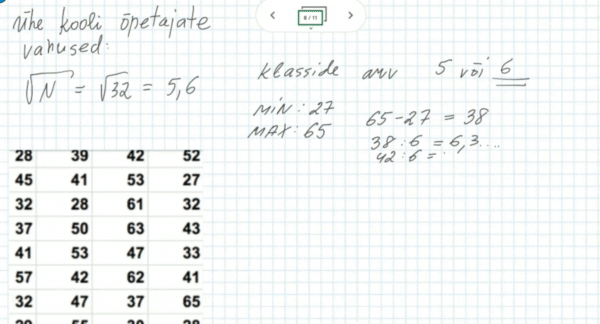 ühe kooli õpetajate
vanused:
√N = √32 = 5,6
8 / 11
klasside arv 5 või 6
MIN: 27
MAX: 65
65-27 = 38
38 : 6 = 6,3...
42 : 6 =
28 39 42 52
45 41 53 27
32 28 61 32
37 50 63 43
41 53 47 33
57 42 62 41
32 47 37 65